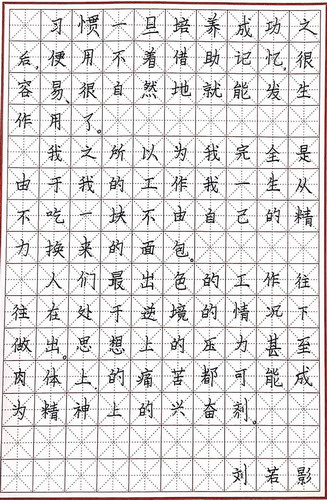 习惯一旦培养成功之
后,便用不着借助记忆,很
容易、很自然地就能发生
作用了。
我之所以为我完全是
由于我的工作我一生从
不吃一块不由自己的精
力换来的面包。
人们最出色的工作往
往在处于逆境的情况下
做出。思想上的压力甚至
肉体上.的痛苦都可能成
为精神上的兴奋剂。
刘若影